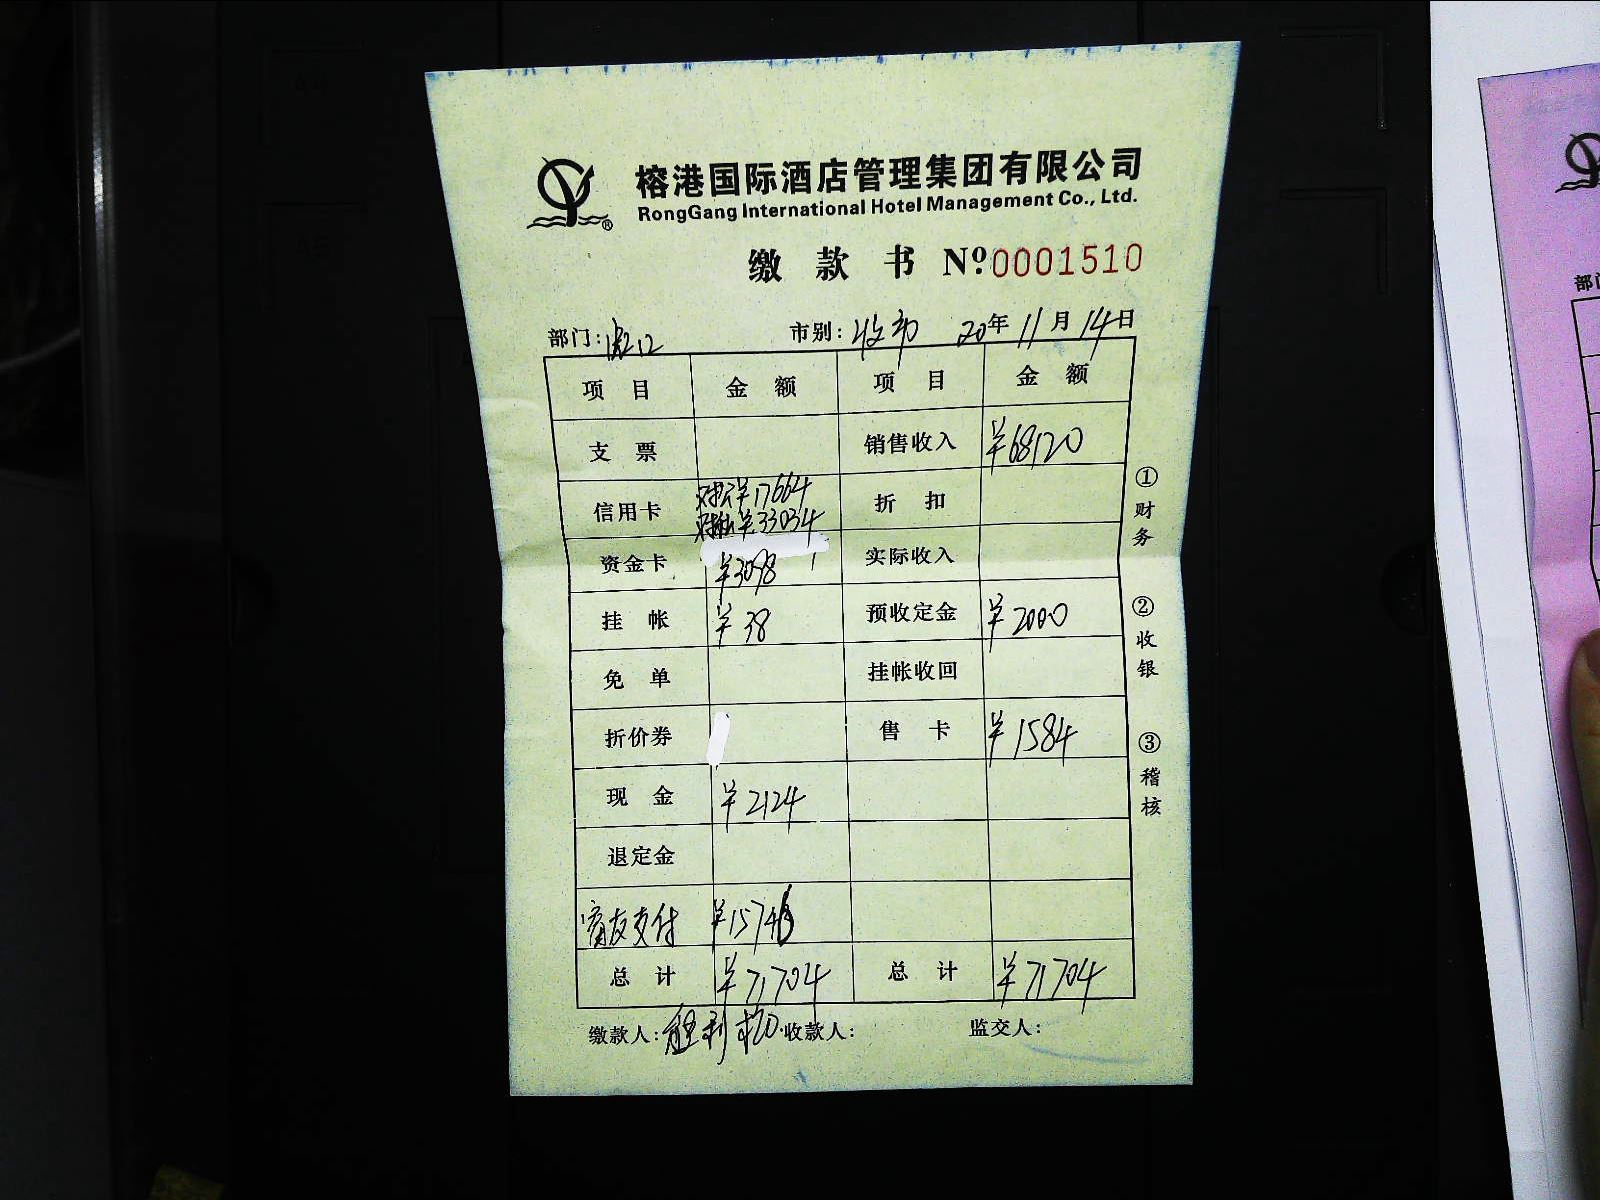 榕港国际酒店管理集团有限公司
RongGang International Hotel Management Co., Ltd.
缴款书 Nº0001510
部门: 市别:收市 20年11月14日
项目 金额 项目 金额
支票 销售收入 ¥68120
信用卡 ¥17664 折扣
¥33034
资金卡 ¥3098 实际收入
挂帐 ¥38 预收定金 ¥2000
免单 挂帐收回
折价券 售卡 ¥1584
现金 ¥2124
退定金
支付 ¥15746
总计 ¥71704 总计 ¥71704
缴款人: 收款人: 监交人:
①财务
②收银
③稽核
部门